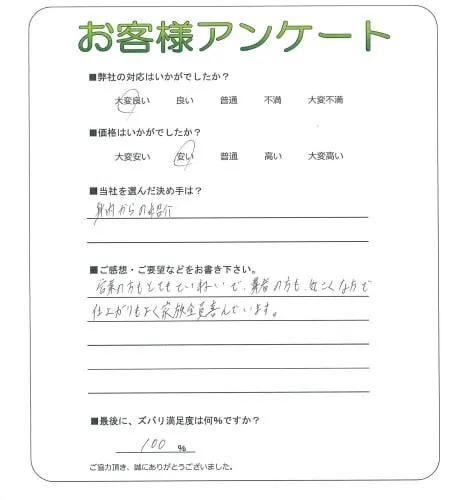 お客様アンケート
■弊社の対応はいかがでしたか？
大変良い 良い 普通 不満 大変不満
■価格はいかがでしたか？
大変安い 安い 普通 高い 大変高い
■当社を選んだ決め手は？
身内からの紹介
■ご感想・ご要望などをお書き下さい。
営業の方もとてもていねいで、業者の方も、気さくな方で
仕上がりもよく家族全員喜んでいます。
■最後に、ズバリ満足度は何％ですか？
100 ％
ご協力頂き、誠にありがとうございました。